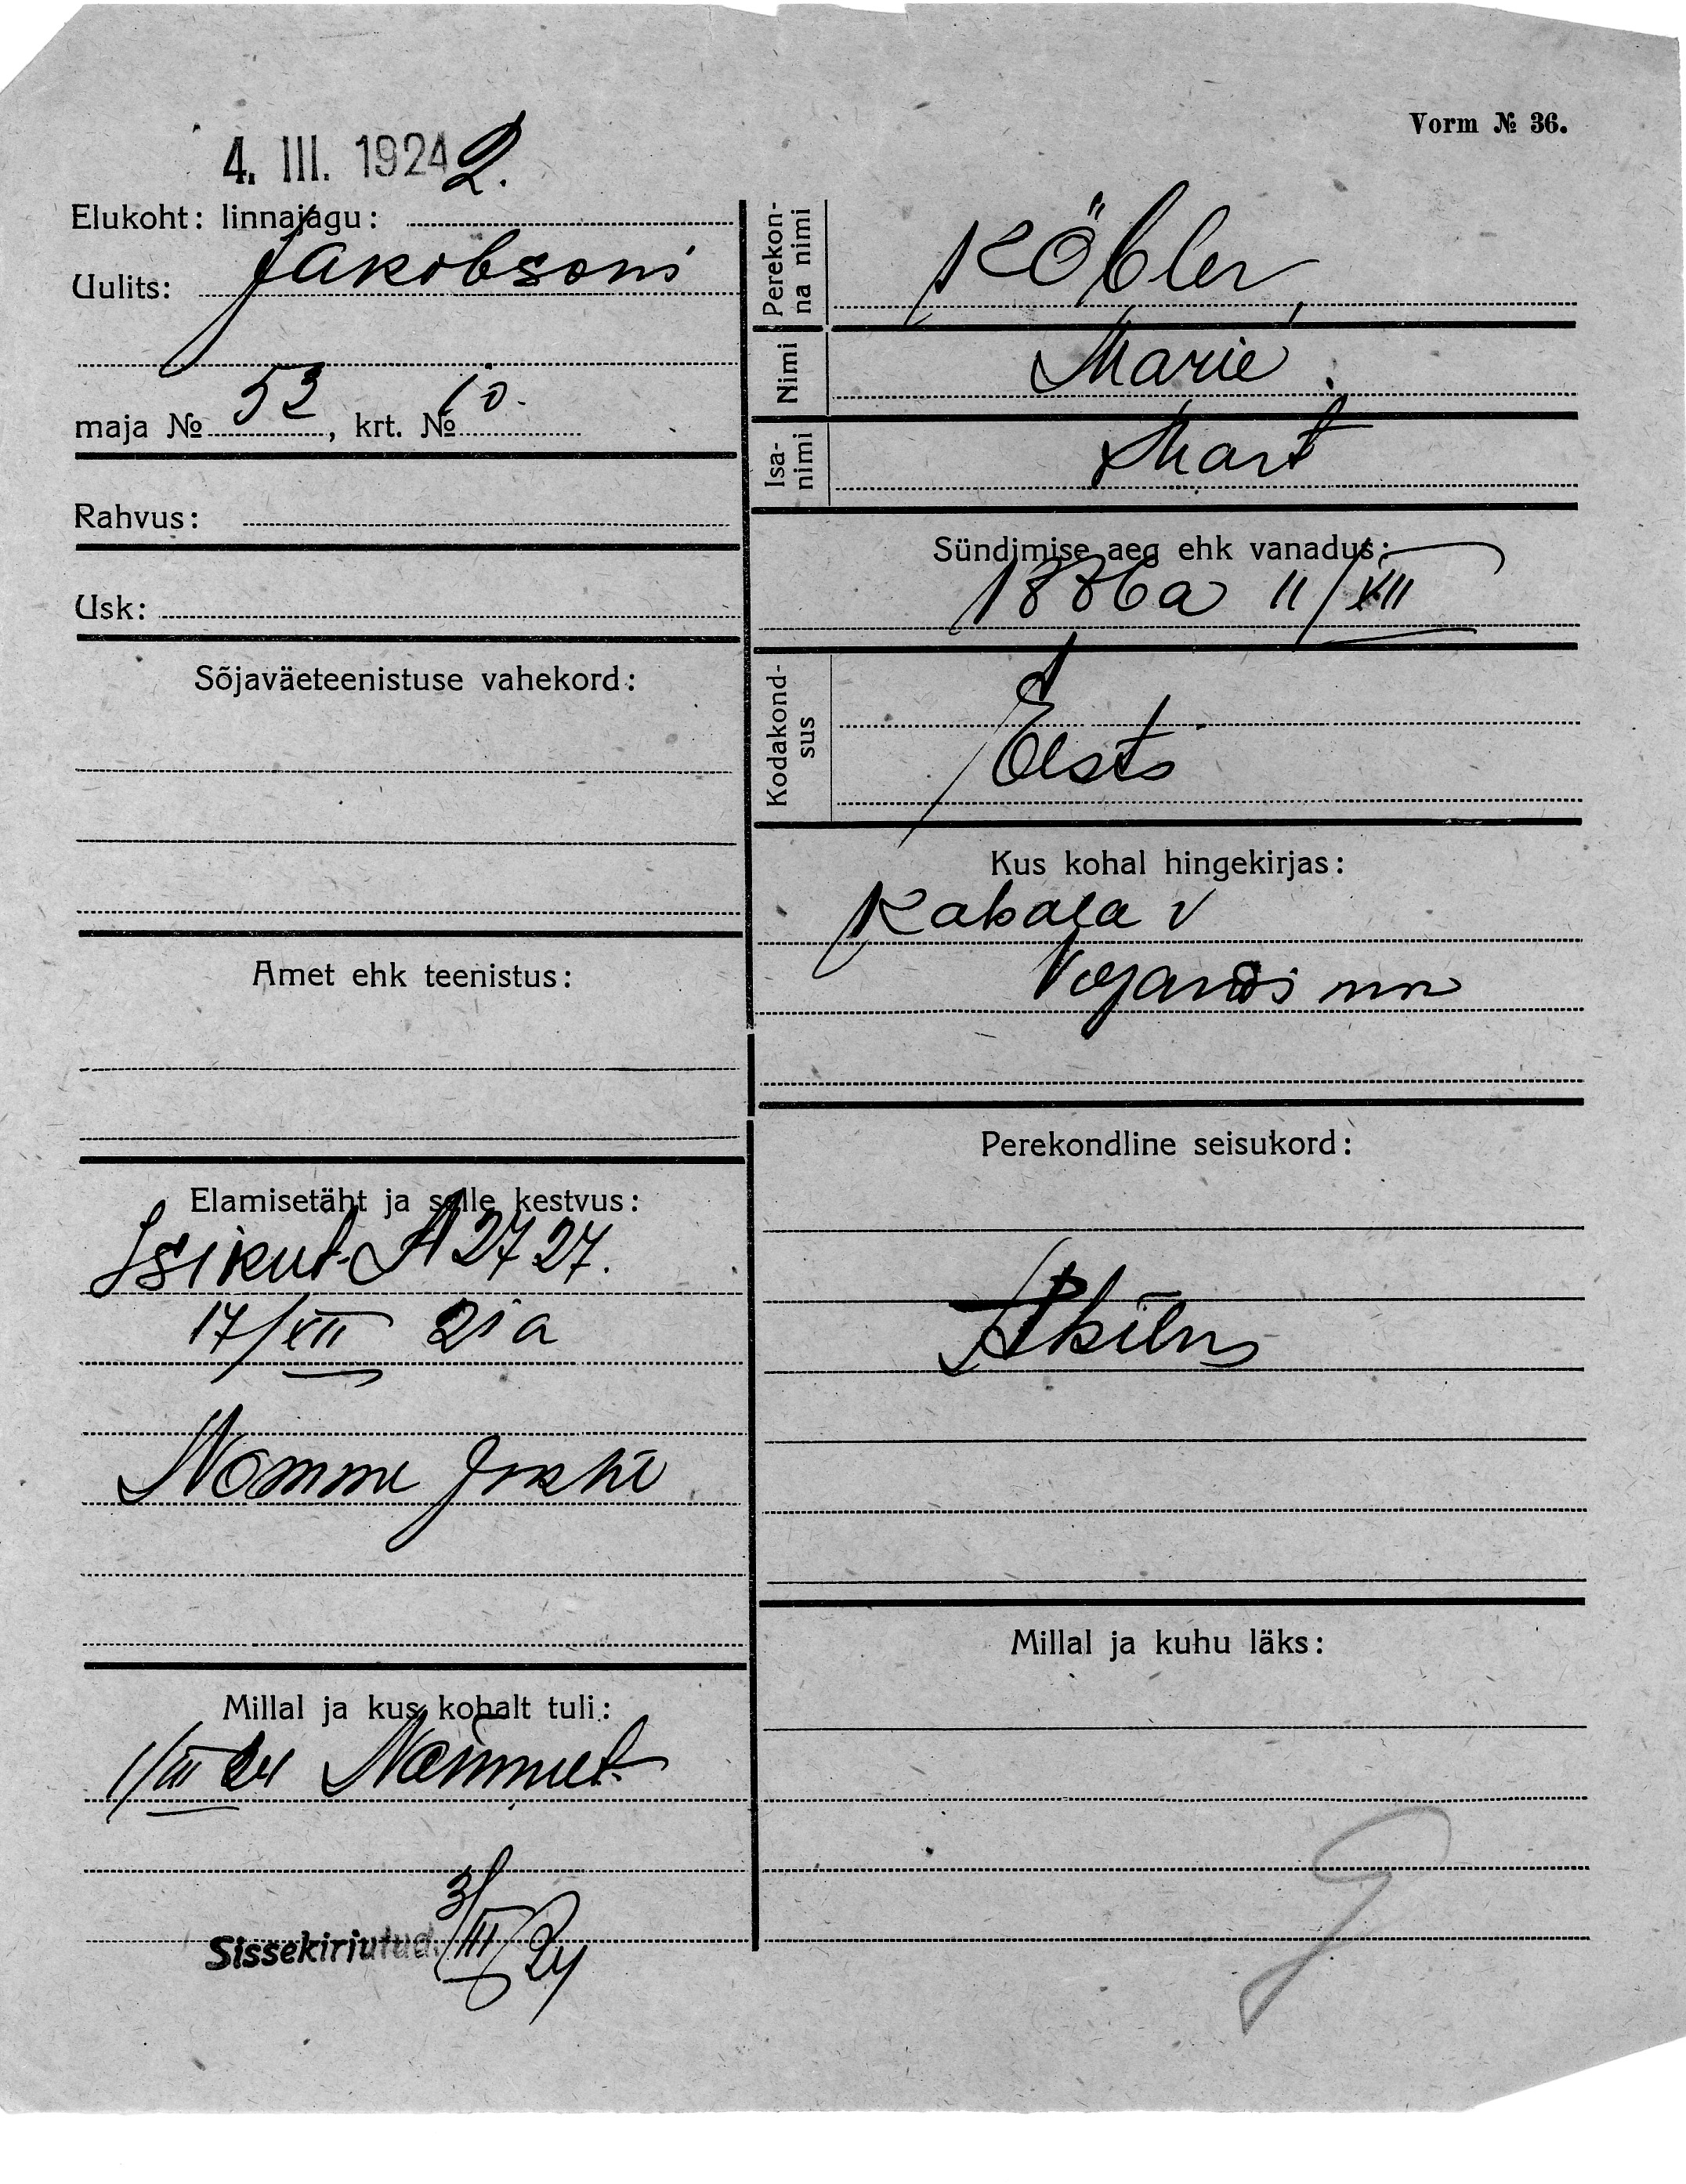 Vorm № 36.
4. III. 1924 2.
Elukoht: linnajagu:
Uulits: Jakobsoni
maja № 53, krt. № 10.
Rahvus:
Usk:
Sõjaväeteenistuse vahekord:
Amet ehk teenistus:
Elamisetäht ja selle kestvus:
Isikut. A 2727.
17/XII 21 a
Nõmme
Millal ja kus kohalt tuli:
1/III 24 Nõmmelt
Sissekirjutud. 3/III 24
Perekonna nimi Köbler,
Nimi Marie.
Isanimi Mart
Sündimise aeg ehk vanadus:
1886a 11/XII
Kodakondsus
Eesti
Kus kohal hingekirjas:
Kabala v
Viljandi mm
Perekondline seisukord:
Millal ja kuhu läks: